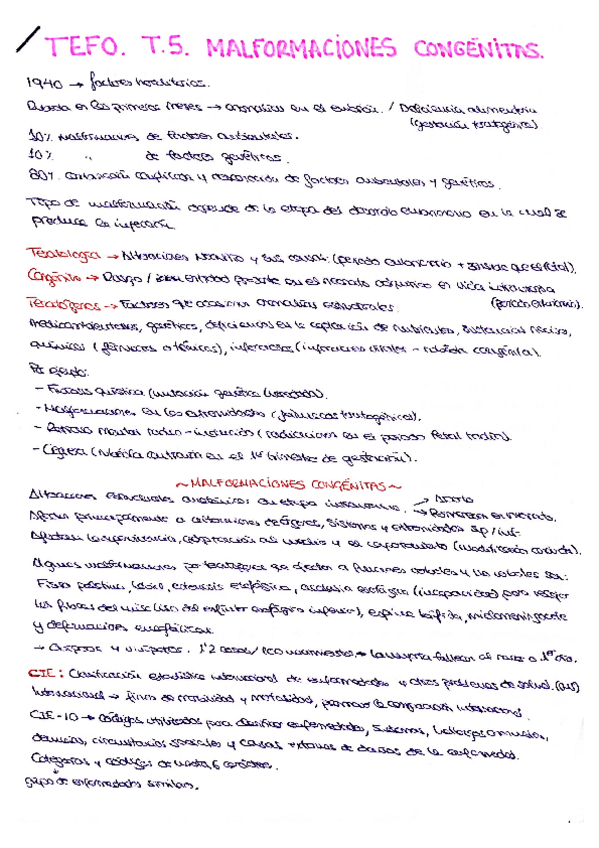 TEFO. T.5. MALFORMACIONES CONGÉNITAS.
1940 → factores hereditarios.
Rubeola en los primeros meses → anomalías en el embrión. / Deficiencia alimentaria
(gestación teratogénica)
10% malformaciones de factores ambientales.
10% " de factores genéticos.
80% combinación complicada y desconocida de factores ambientales y genéticos.
Tipo de malformación depende de la etapa del desarrollo embrionario en la cual se
produce la infección.
Teratología → Alteraciones neonato y sus causas. (periodo embrionario + sensible que es fetal).
Congénito → Rasgo / identidad presente en el neonato adquirido en vida intrauterina
(periodo embrionario).
Teratógenos → Factores que ocasionan anomalías estructurales.
Medicamentosos, genéticos, deficiencias en la captación de nutrientes, sustancias nocivas,
químicas (fármacos o tóxicos), infecciosas (infecciones virales - rubeola congénita).
Por ejemplo:
- Fibrosis quística (mutación genética heredada).
- Malformaciones en las extremidades (fármacos teratogénicos).
- Retraso mental radio-inducido (radiaciones en el periodo fetal medio).
- Ceguera (rubeola contraída en el 1er trimestre de gestación).
~MALFORMACIONES CONGÉNITAS~
Alteraciones estructurales anatómicas en etapa intrauterina. → Aborto
→ Permanecen en neonato.
Afectan principalmente a órganos, sistemas y extremidades sp/inf.
Afectan la supervivencia, adaptación al medio y el comportamiento (modificando conducta).
Algunas malformaciones que afectan a funciones orales y no orales son:
Fisura palatina, labial, estenosis esofágica, acalasia esofágica (incapacidad) para relajar
las fibras del músculo liso del esfínter esofágico inferior), espina bífida, mielomeningocele
y deformaciones encefálicas.
→ 1'2 casos/1000 nacimientos → La mayoría fallecen al nacer o 1er día.
CIE: Clasificación estadística internacional de enfermedades y otros problemas de salud. (OMS)
Internacional → fines de morbilidad y mortalidad, permite la comparación internacional.
CIE-10 → códigos utilizados para clasificar enfermedades, síntomas, hallazgos anormales,
denuncias, circunstancias sociales y causas externas de daños de la enfermedad.
Categorías y códigos de hasta 6 caracteres.
grupo de enfermedades similares.